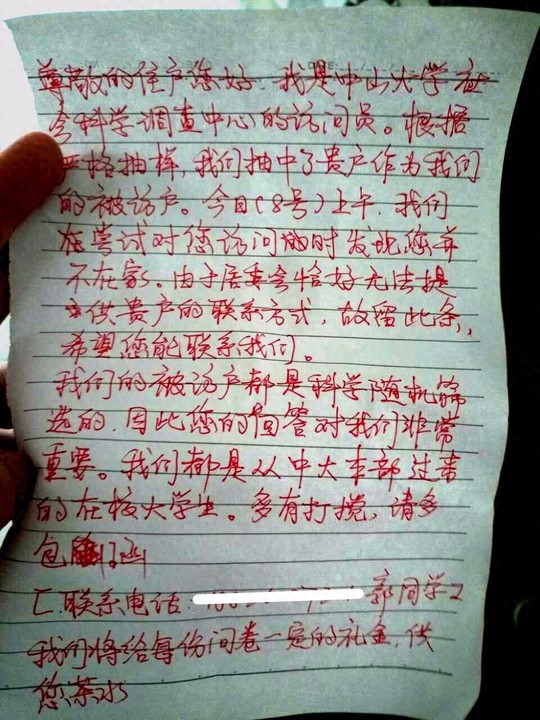 尊敬的住户您好．我是中山大学社
会科学调查中心的访问员。根据
严格抽样,我们抽中了贵户作为我们
的被访户。今日(8号)上午．我们
在尝试对您访问的时发现您并
不在家。由于居委会恰好无法提
供贵户的联系方式，故留此条，
希望您能联系我们。
我们的被访户都是科学随机筛
选的．因此您的回答对我们非常
重要。我们都是从中大本部过来
的在校大学生。多有打搅，请多
包涵
[联系电话 郭同学]
我们将给每份问卷一定的礼金．供
您茶水